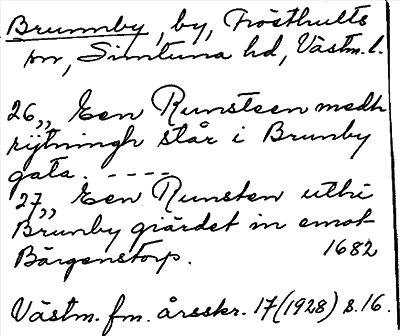 Brunnby, by, Frösthults
sn, Simtuna hd, Västm. l.
26,, Een Runsteen medh
rijtningh står i Brunby
gata. ----
27,, Een Runsten uthi
Brunby giärdet in emot
Bärgenstorp. 1682
Västm. fm. årsskr. 17 (1928) s. 16.